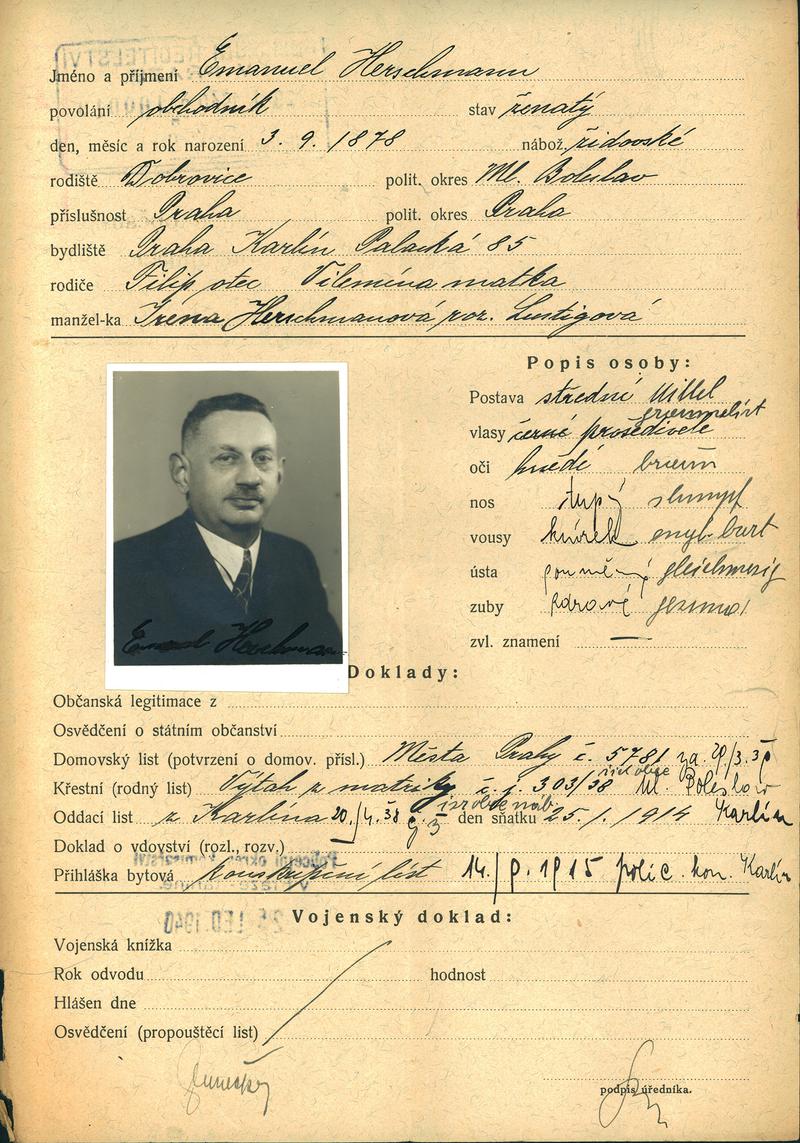 Jméno a příjmení Emanuel Herschmann
povolání obchodník stav ženatý
den, měsíc a rok narození 3. 9. 1878 nábož. židovské
rodiště Dobrovice polit. okres Ml. Boleslav
příslušnost Praha polit. okres Praha
bydliště Praha Karlín Palacká 85
rodiče Filip otec Vilemína matka
manžel-ka Iréna Herschmanová roz. Lustigová
Popis osoby:
Postava střední Mittel
vlasy černé prošedivělé
oči hnědé braun
nos tupý stumpf
vousy knírek engl. bart
ústa
zuby zdravé gesund
zvl. znamení —
Emanuel Herschmann
Doklady:
Občanská legitimace z
Osvědčení o státním občanství
Domovský list (potvrzení o domov. přísl.) Města Prahy č. 5781
Křestní (rodný list) Výtah z matriky č. j. 303/38 Ml. Boleslav
Oddací list z Karlína 20./4. 38 den sňatku 25. 1. 1914 Karlín
Doklad o vdovství (rozl., rozv.) —
Přihláška bytová 1915 polic. kom. Karlín
Vojenský doklad:
Vojenská knížka
Rok odvodu hodnost
Hlášen dne
Osvědčení (propouštěcí list)
podpis úředníka.